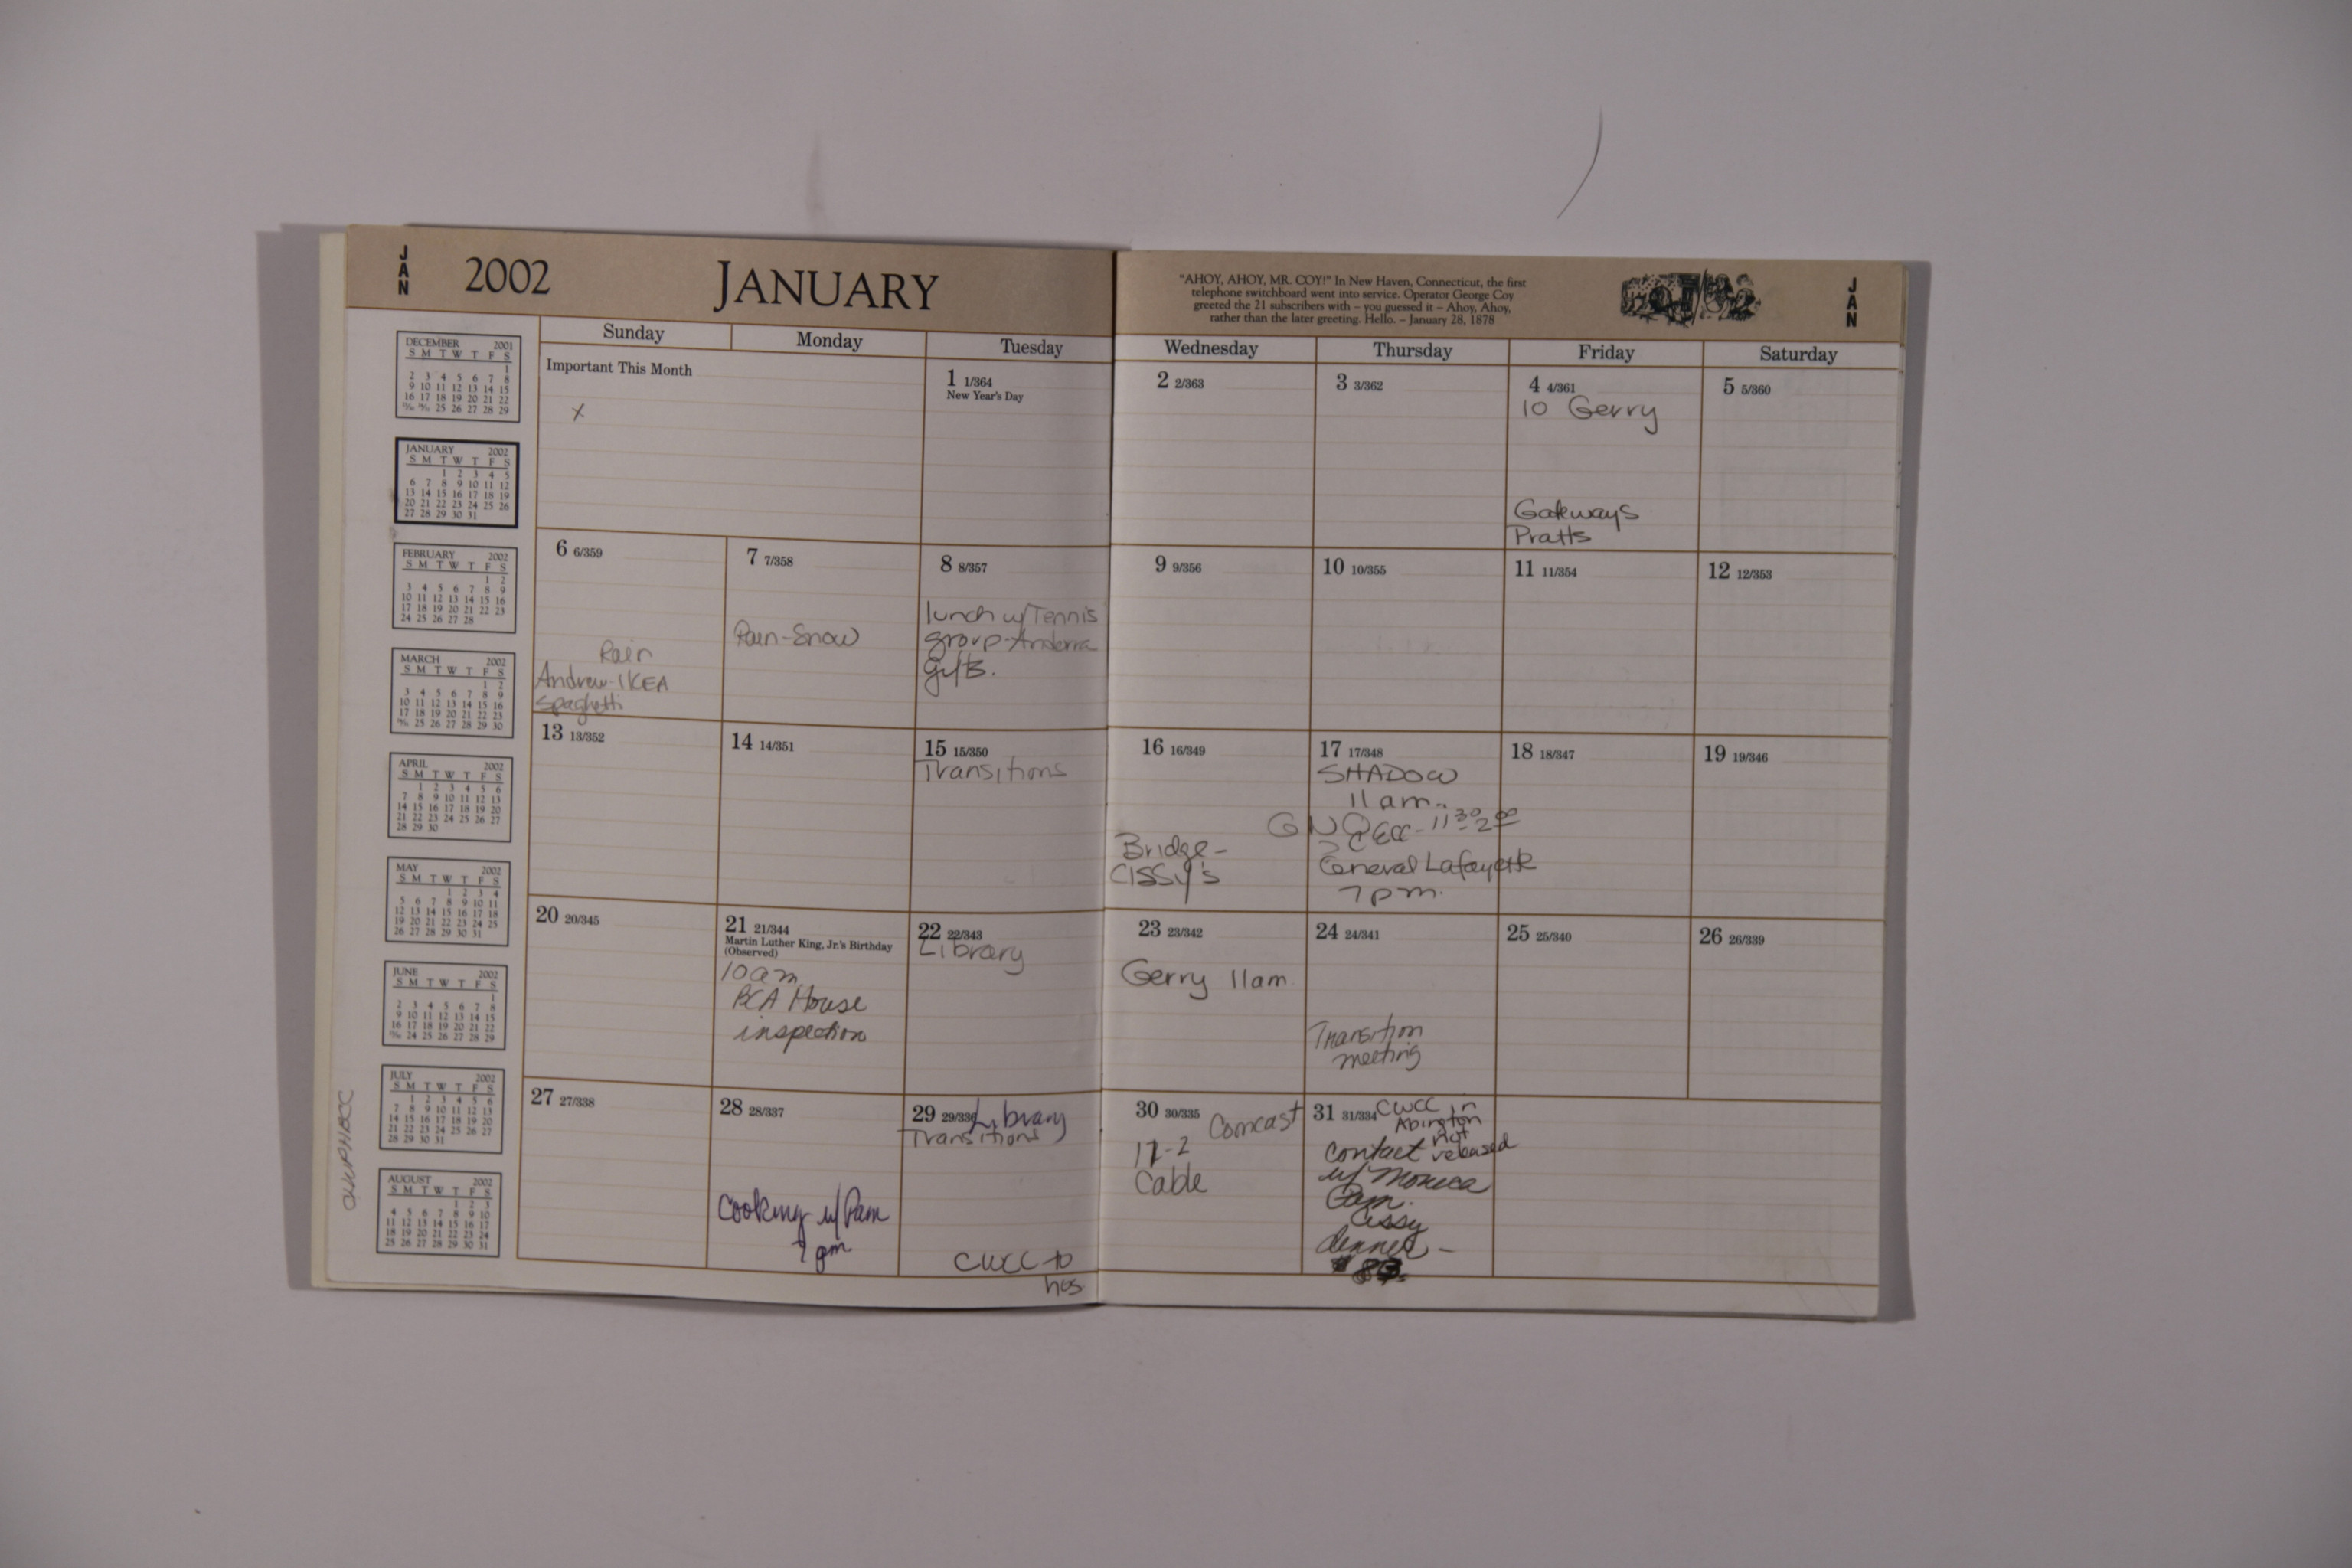 JAN
2002
JANUARY
"AHOY, AHOY, MR. COY!" In New Haven, Connecticut, the first
telephone switchboard went into service. Operator George Coy
greeted the 21 subscribers with – you guessed it – Ahoy, Ahoy,
rather than the later greeting. Hello. – January 28, 1878
JAN
Sunday Monday Tuesday Wednesday Thursday Friday Saturday
Important This Month
x
1 1/364
New Year's Day
2 2/363
3 3/362
4 4/361
10 Gerry
Gateways
Pratts
5 5/360
6 6/359
Rain
Andrew-IKEA
Spaghetti
7 7/358
Rain-Snow
8 8/357
lunch w/Tennis
group-Andorra
gifts.
9 9/356
10 10/355
11 11/354
12 12/353
13 13/352
14 14/351
15 15/350
Transitions
16 16/349
Bridge-
CISSY's
17 17/348
SHADOW
11am.
GNO
CECC-11:30-2:00
General Lafayette
7pm.
18 18/347
19 19/346
20 20/345
21 21/344
Martin Luther King, Jr.'s Birthday
(Observed)
10am
BCA House
inspection
22 22/343
Library
23 23/342
Gerry 11am
24 24/341
Transition
meeting
25 25/340
26 26/339
27 27/338
28 28/337
Cooking w/Pam
29 29/336 Library
Transitions
CWCC to
hos
30 30/335 Comcast
Cable
31 31/334 CWCC in
Abington
not
contact released
w/ Monica
Pam.
Cissy
dinner –
DECEMBER 2001
S M T W T F S
1
2 3 4 5 6 7 8
9 10 11 12 13 14 15
16 17 18 19 20 21 22
23/30 24/31 25 26 27 28 29
JANUARY 2002
S M T W T F S
1 2 3 4 5
6 7 8 9 10 11 12
13 14 15 16 17 18 19
20 21 22 23 24 25 26
27 28 29 30 31
FEBRUARY 2002
S M T W T F S
1 2
3 4 5 6 7 8 9
10 11 12 13 14 15 16
17 18 19 20 21 22 23
24 25 26 27 28
MARCH 2002
S M T W T F S
1 2
3 4 5 6 7 8 9
10 11 12 13 14 15 16
17 18 19 20 21 22 23
24/31 25 26 27 28 29 30
APRIL 2002
S M T W T F S
1 2 3 4 5 6
7 8 9 10 11 12 13
14 15 16 17 18 19 20
21 22 23 24 25 26 27
28 29 30
MAY 2002
S M T W T F S
1 2 3 4
5 6 7 8 9 10 11
12 13 14 15 16 17 18
19 20 21 22 23 24 25
26 27 28 29 30 31
JUNE 2002
S M T W T F S
1
2 3 4 5 6 7 8
9 10 11 12 13 14 15
16 17 18 19 20 21 22
23/30 24 25 26 27 28 29
JULY 2002
S M T W T F S
1 2 3 4 5 6
7 8 9 10 11 12 13
14 15 16 17 18 19 20
21 22 23 24 25 26 27
28 29 30 31
AUGUST 2002
S M T W T F S
1 2 3
4 5 6 7 8 9 10
11 12 13 14 15 16 17
18 19 20 21 22 23 24
25 26 27 28 29 30 31